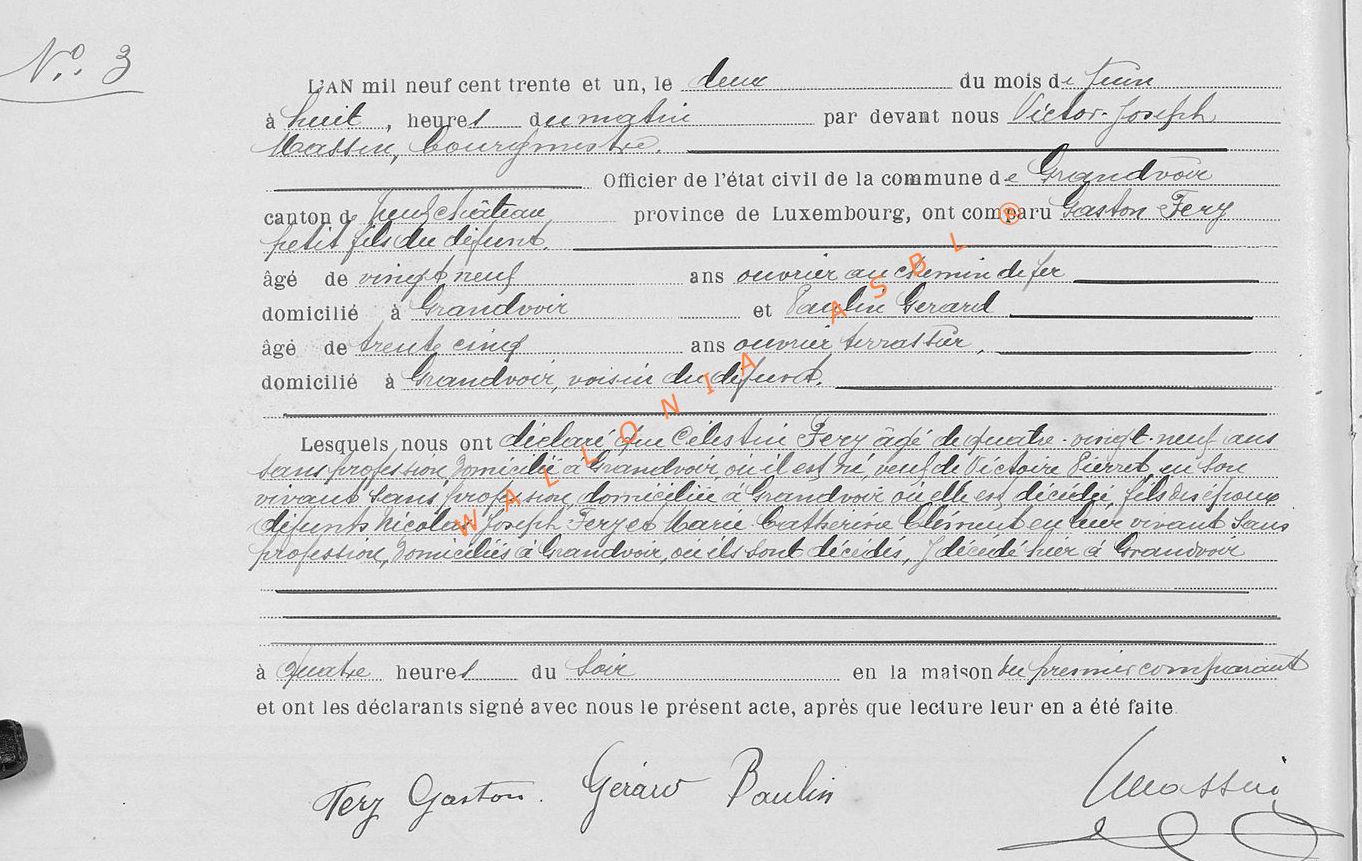 N.o. 3
L'AN mil neuf cent trente et un, le deux du mois de Juin
à huit, heures du matin par devant nous Victor-Joseph
Massin, bourgmestre.
Officier de l'état civil de la commune de Grandvoir
canton de Neufchâteau province de Luxembourg, ont comparu Gaston Fery
petit fils du défunt.
âgé de vingt neuf ans ouvrier au chemin de fer
domicilié à Grandvoir et Paulin Gerard
âgé de trente cinq ans ouvrier terrassier,
domicilié à Grandvoir, voisin du défunt.
Lesquels nous ont déclaré que Célestin Fery âgé de quatre-vingt-neuf ans
sans profession, domicilié à Grandvoir, où il est né, veuf de Victoire Pierret, en son
vivant sans profession, domiciliée à Grandvoir où elle est décédée, fils des époux
défunts Nicolas Joseph Fery et Marie Catherine Clément en leur vivant sans
profession, domiciliés à Grandvoir, où ils sont décédés, décédé hier à Grandvoir
à quatre heures du soir en la maison du premier comparant
et ont les déclarants signé avec nous le présent acte, après que lecture leur en a été faite
Fery Gaston. Gérard Paulin Massin
WALLONIA ASBL ®